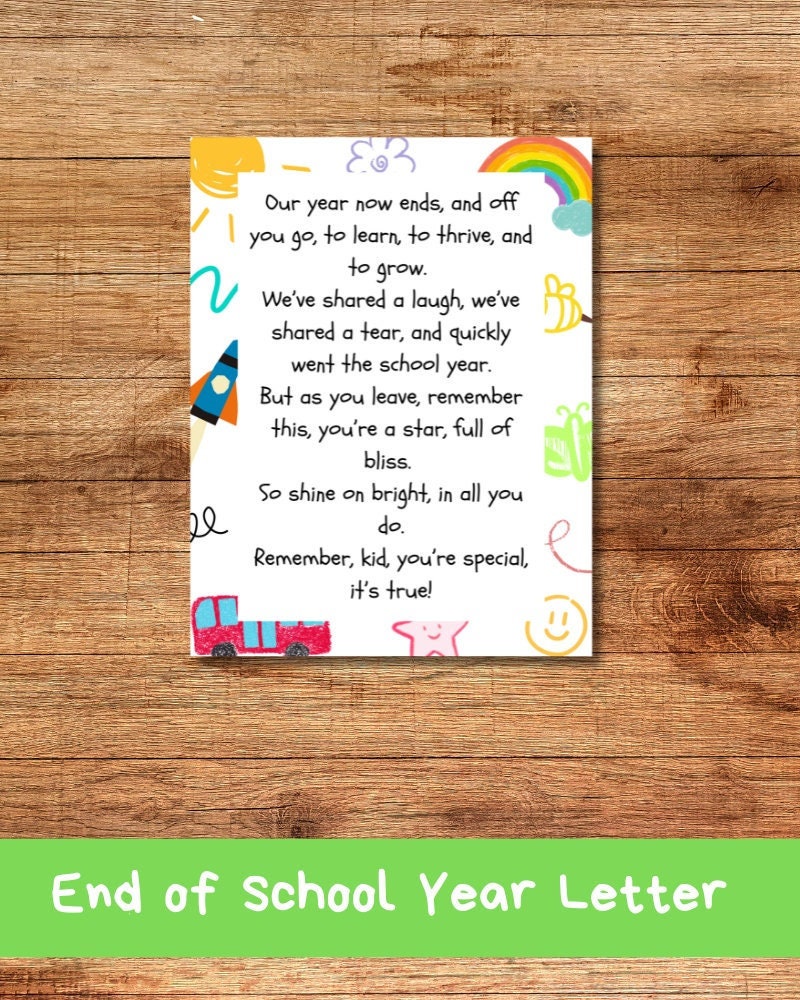 Our year now ends, and off
you go, to learn, to thrive, and
to grow.
We've shared a laugh, we've
shared a tear, and quickly
went the school year.
But as you leave, remember
this, you're a star, full of
bliss.
So shine on bright, in all you
do.
Remember, kid, you're special,
it's true!
End of School Year Letter